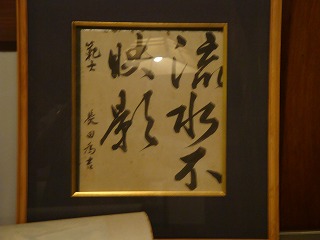 流水不
映影
範士 長田為吉